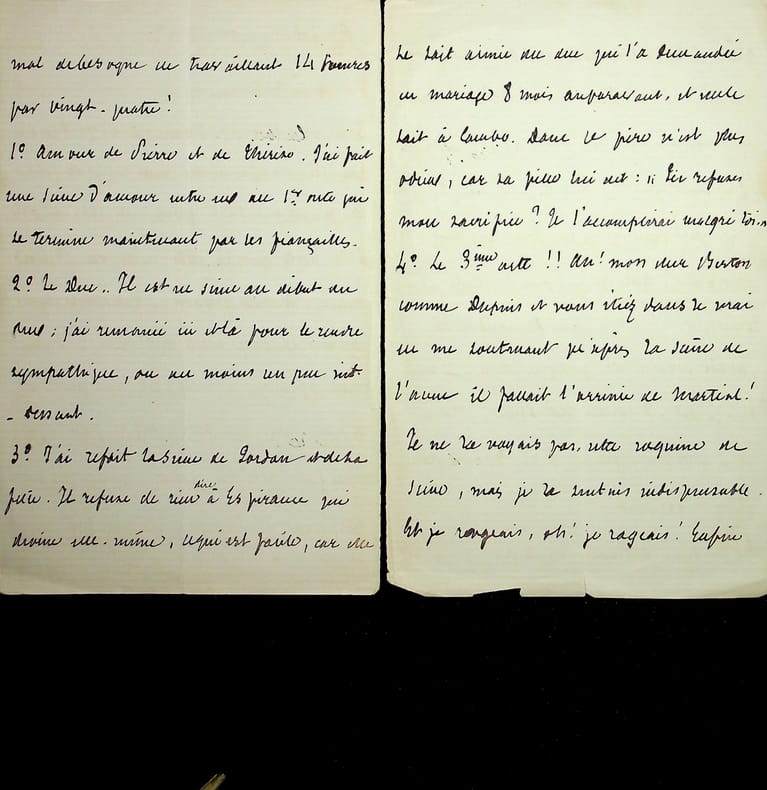 mal de besogne en travaillant 14 heures
par vingt-quatre!
1º Amour de Pierre et de Thérèse. J'ai fait
une scène d'amour entre eux au 1er acte qui
se termine maintenant par les fiançailles.
2º Le Duc.. Il est en scène au début du
; j'ai remanié ici et là pour le rendre
sympathique, ou au moins un peu inté-
-ressant.
3º J'ai refait la scène de Gordon et de sa
fille. Il refuse de rien dire à Espérance qui
devine elle-même, ce qui est facile, car elle
se sait aimée du duc qui l'a demandée
en mariage 8 mois auparavant, et seule
sait à . Donc le père n'est plus
odieux, car sa fille lui dit: "Tu refuses
mon sacrifice? Je l'accomplirai malgré toi."
4º Le 3ème acte!! Ah! mon cher Berton
comme Dupuis et vous étiez dans le vrai
en me soutenant qu'après la scène de
l'aveu il fallait l'arrivée de Martial!
Je ne la voyais pas, cette coquine de
scène, mais je la sentais indispensable.
Et je rageais, oh! je rageais! Enfin